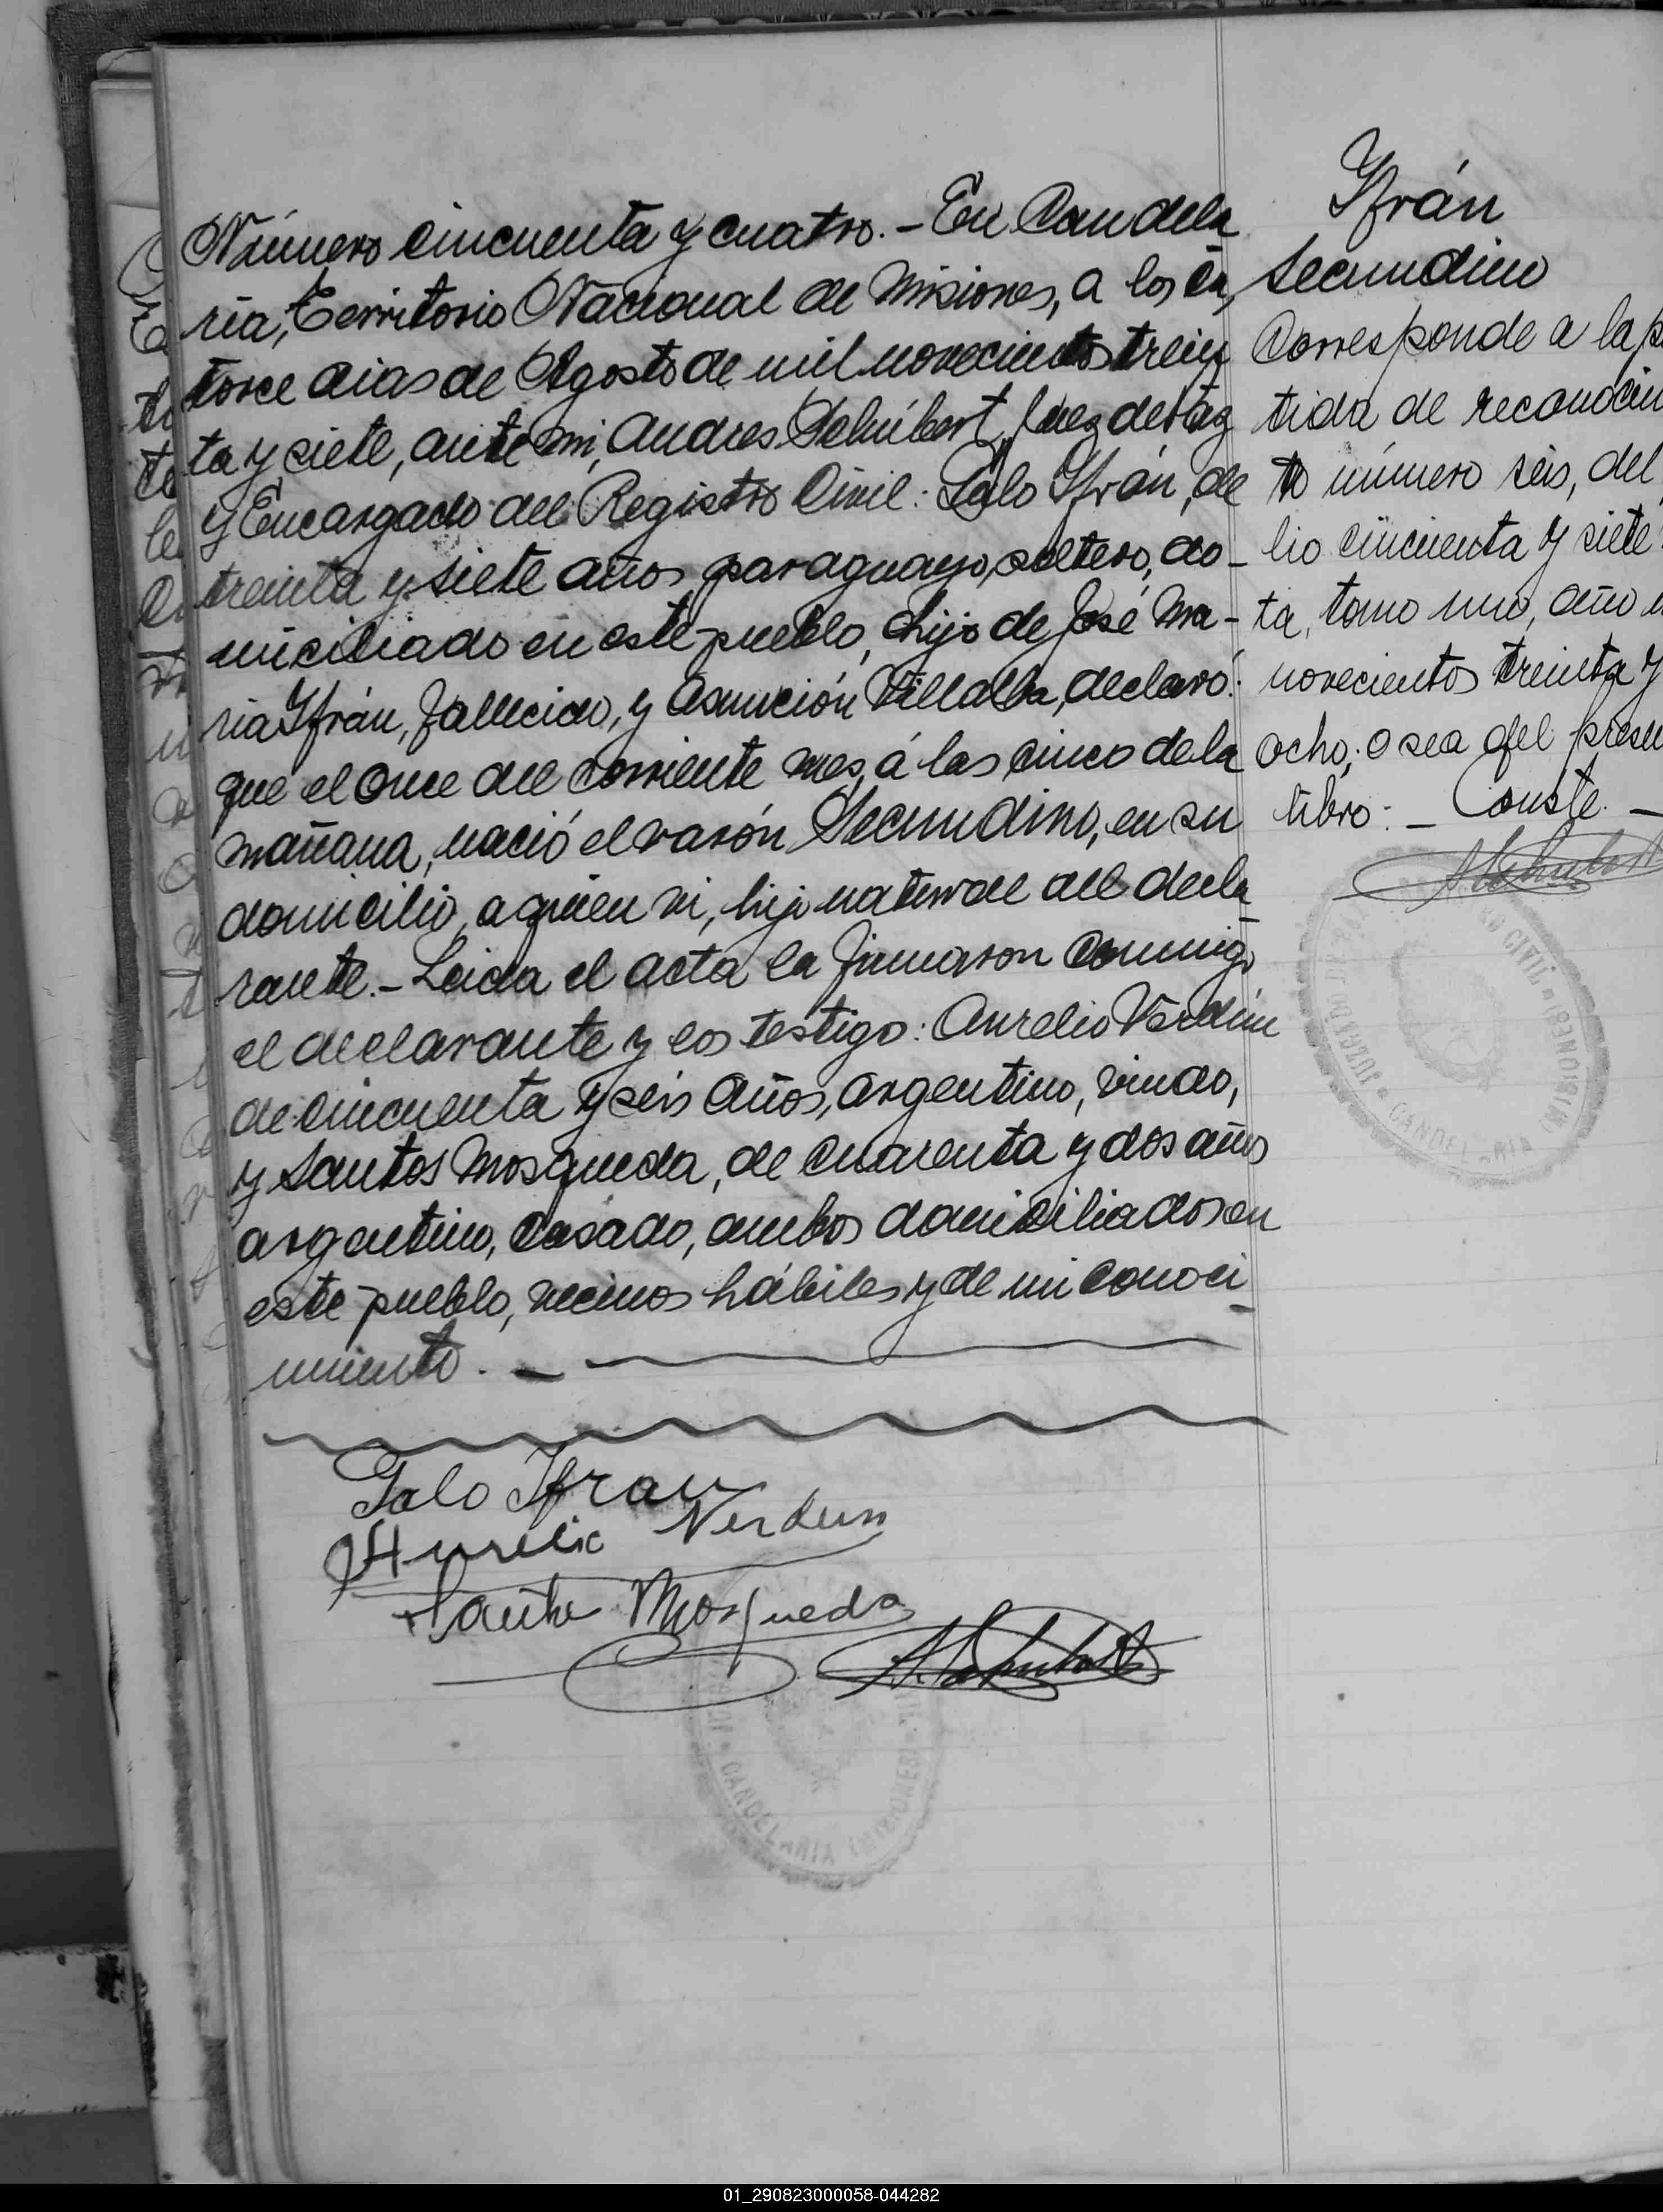 Número cincuenta y cuatro. - En Candela
ria, Territorio Nacional de Misiones, a los ca,
torce dias de Agosto de mil novecientos trein
ta y siete, ante mi, Andres Schúbert, Juez de Paz
y Encargado del Registro Civil: Lalo Ifrán, de
treinta y siete años, paraguayo, soltero, do-
miciliado en este pueblo, hijo de José Ma-
ria Ifrán, fallecido, y Asunción Villalba, declaró:
que el once del corriente mes, á las cinco de la
mañana, nació el varón Secundino, en su
domicilio, a quien vi, hijo natural del decla_
rante. - Leida el acta la firmaron conmigo
el declarante y los testigo: Aurelio Verdún
de cincuenta y seis años, argentino, viudo,
y Santos Mosqueda, de cuarenta y dos años
argentino, casado, ambos domiciliados en
este pueblo, vecinos hábiles y de mi conoci_
miento. -
Ifrán
Secundino
Corresponde a la p
tida de reconocim
to número seis, del
lio cincuenta y siete
ta, tomo uno, año
novecientos treinta y
ocho; o sea del prese
libro: _ Conste. _
Lalo Ifran
Aurelio Verdun
Santos Mosqueda
ASchubert
ASchubert
CIVIL (MISIONES)
CANDELARIA
CANDELARIA (MISIONES)
01_290823000058-044282